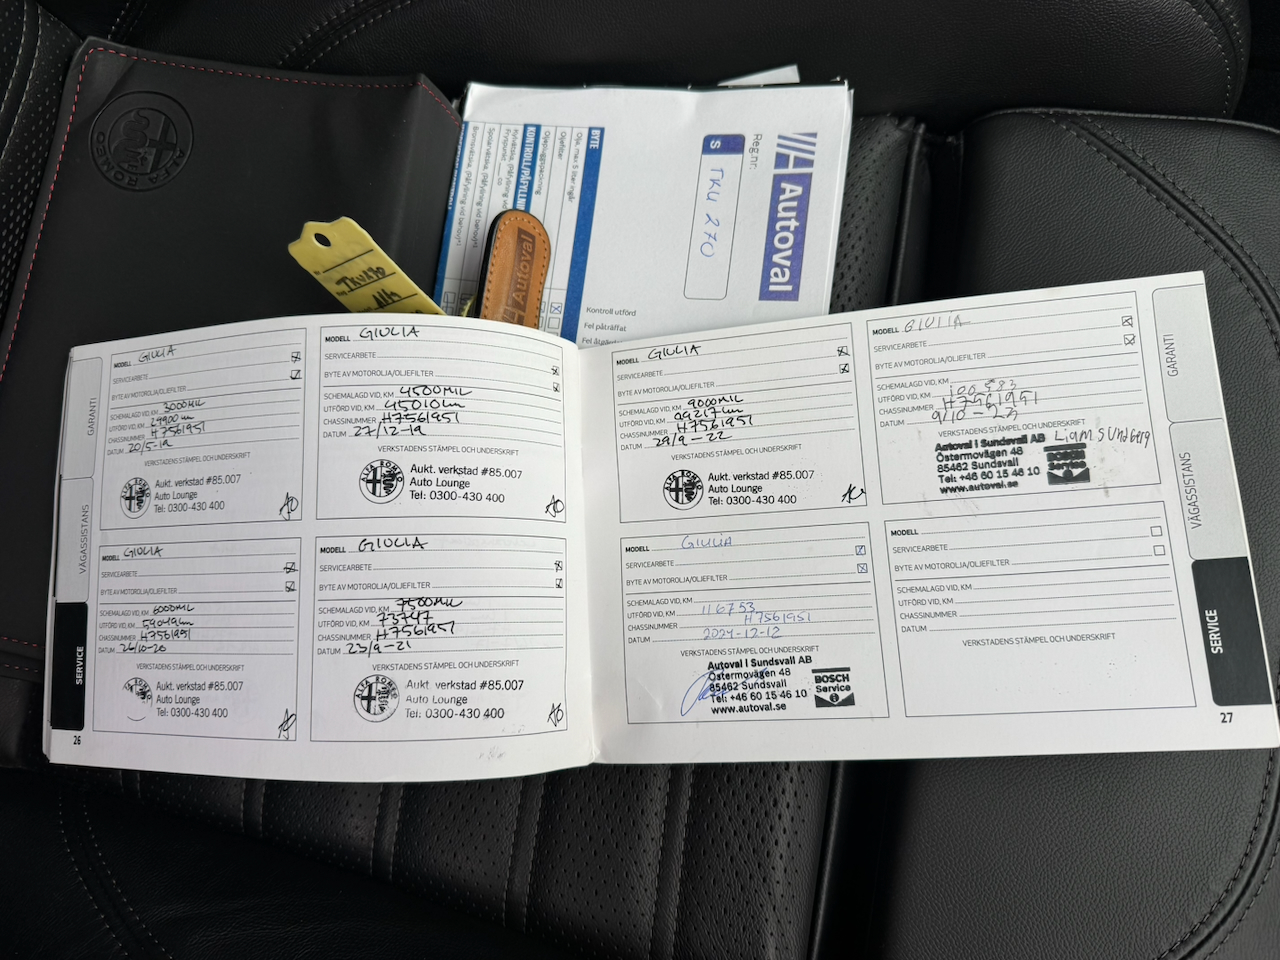 ALFA ROMEO
Autoval
Reg.nr:
S TKU 270
BYTE
Olja, max 5 liter ingår
Oljefilter
Oljeplugg/packning
KONTROLL/PÅFYLLNING
Kontroll utförd
Fel påträffat
Autoval
GARANTI
VÄGASSISTANS
SERVICE
26
MODELL GIULIA
SERVICEARBETE
BYTE AV MOTOROLJA/OLJEFILTER
SCHEMALAGD VID, KM 3000MIL
UTFÖRD VID, KM 29900 km
CHASSINUMMER H7561951
DATUM 20/5-19
VERKSTADENS STÄMPEL OCH UNDERSKRIFT
ALFA ROMEO
Aukt. verkstad #85.007
Auto Lounge
Tel: 0300-430 400
MODELL GIULIA
SERVICEARBETE
BYTE AV MOTOROLJA/OLJEFILTER
SCHEMALAGD VID, KM 4500MIL
UTFÖRD VID, KM 45010km
CHASSINUMMER H7561951
DATUM 27/12-19
VERKSTADENS STÄMPEL OCH UNDERSKRIFT
ALFA ROMEO
Aukt. verkstad #85.007
Auto Lounge
Tel: 0300-430 400
MODELL GIULIA
SERVICEARBETE
BYTE AV MOTOROLJA/OLJEFILTER
SCHEMALAGD VID, KM 6000MIL
UTFÖRD VID, KM 59049km
CHASSINUMMER H7561951
DATUM 26/10-20
VERKSTADENS STÄMPEL OCH UNDERSKRIFT
Aukt. verkstad #85.007
Auto Lounge
Tel: 0300-430 400
MODELL GIULIA
SERVICEARBETE
BYTE AV MOTOROLJA/OLJEFILTER
SCHEMALAGD VID, KM 7500MIL
UTFÖRD VID, KM 73747
CHASSINUMMER H7561951
DATUM 23/9-21
VERKSTADENS STÄMPEL OCH UNDERSKRIFT
ALFA ROMEO
Aukt. verkstad #85.007
Auto Lounge
Tel: 0300-430 400
MODELL GIULIA
SERVICEARBETE
BYTE AV MOTOROLJA/OLJEFILTER
SCHEMALAGD VID, KM 9000MIL
UTFÖRD VID, KM 89217km
CHASSINUMMER H7561951
DATUM 29/9-22
VERKSTADENS STÄMPEL OCH UNDERSKRIFT
ALFA ROMEO
Aukt. verkstad #85.007
Auto Lounge
Tel: 0300-430 400
MODELL GIULIA
SERVICEARBETE
BYTE AV MOTOROLJA/OLJEFILTER
SCHEMALAGD VID, KM
UTFÖRD VID, KM 100583
CHASSINUMMER H7561951
DATUM 9/10-23
VERKSTADENS STÄMPEL OCH UNDERSKRIFT
Autoval i Sundsvall AB Liam Sundberg
Östermovägen 48
85462 Sundsvall
Tel: +46 60 15 46 10
www.autoval.se
BOSCH
Service
MODELL GIULIA
SERVICEARBETE
BYTE AV MOTOROLJA/OLJEFILTER
SCHEMALAGD VID, KM
UTFÖRD VID, KM 116753
CHASSINUMMER H7561951
DATUM 2024-12-12
VERKSTADENS STÄMPEL OCH UNDERSKRIFT
Autoval i Sundsvall AB
Östermovägen 48
85462 Sundsvall
Tel: +46 60 15 46 10
www.autoval.se
BOSCH
Service
MODELL
SERVICEARBETE
BYTE AV MOTOROLJA/OLJEFILTER
SCHEMALAGD VID, KM
UTFÖRD VID, KM
CHASSINUMMER
DATUM
VERKSTADENS STÄMPEL OCH UNDERSKRIFT
GARANTI
VÄGASSISTANS
SERVICE
27